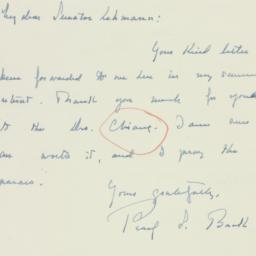 My dear Senator Lehmann:
Your kind letter
been forwarded to me here in my summer
retreat. Thank you much for your
to the Drs. Chiang. I am sure
are worth it, and I pray the

Yours gratefully,
Paul